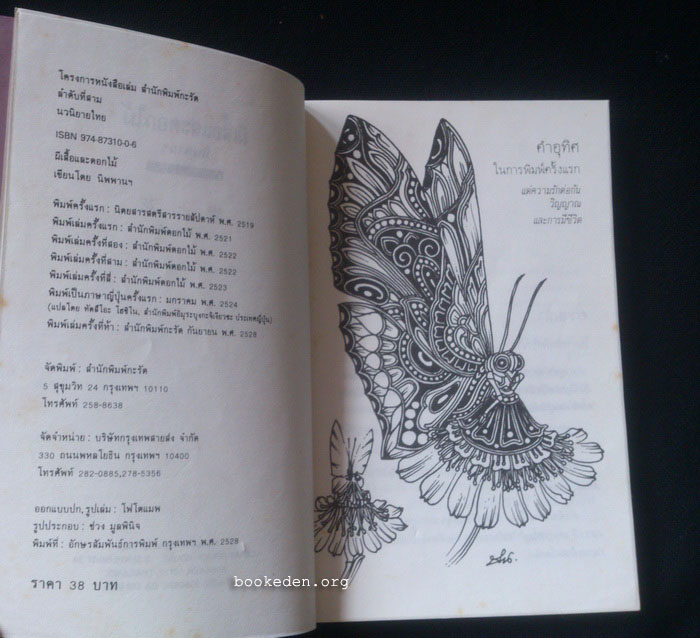 โครงการหนังสือเล่ม สำนักพิมพ์กะรัต
ลำดับที่สาม
นวนิยายไทย
ISBN 974-87310-0-6
ผีเสื้อและดอกไม้
เขียนโดย นิพพานฯ
พิมพ์ครั้งแรก : นิตยสารสตรีสารรายสัปดาห์ พ.ศ. 2519
พิมพ์เล่มครั้งแรก : สำนักพิมพ์ดอกไม้ พ.ศ. 2521
พิมพ์เล่มครั้งที่สอง : สำนักพิมพ์ดอกไม้ พ.ศ. 2522
พิมพ์เล่มครั้งที่สาม : สำนักพิมพ์ดอกไม้ พ.ศ. 2522
พิมพ์เล่มครั้งที่สี่ : สำนักพิมพ์ดอกไม้ พ.ศ. 2523
พิมพ์เป็นภาษาญี่ปุ่นครั้งแรก : มกราคม พ.ศ. 2524
(แปลโดย ทัตสึโอะ โฮชิโน, ประเทศญี่ปุ่น)
พิมพ์เล่มครั้งที่ห้า : สำนักพิมพ์กะรัต กันยายน พ.ศ. 2528
จัดพิมพ์ : สำนักพิมพ์กะรัต
5 สุขุมวิท 24 กรุงเทพฯ 10110
โทรศัพท์ 258-8638
จัดจำหน่าย : บริษัทกรุงเทพสายส่ง จำกัด
330 ถนนพหลโยธิน กรุงเทพฯ 10400
โทรศัพท์ 282-0885,278-5356
ออกแบบปก,รูปเล่ม : โฟโตแมพ
รูปประกอบ : ช่วง มูลพินิจ
พิมพ์ที่ : อักษรสัมพันธ์การพิมพ์ กรุงเทพฯ พ.ศ. 2528
ราคา 38 บาท
คำอุทิศ
ในการพิมพ์ครั้งแรก
แด่ความรักต่อกัน
วิญญาณ
และการมีชีวิต
bookeden.org